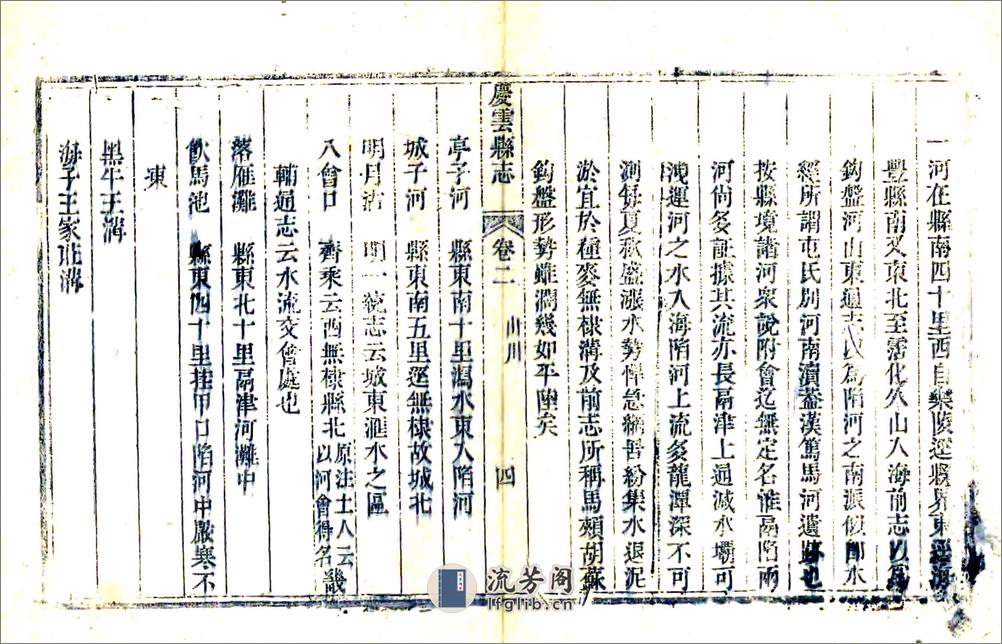 一河在縣南四十里西自樂陵逕縣界東逕海
豐縣南又東北至霑化久山入海前志以爲
鈎盤河山東通志以爲陷河之南派似卽水
經所謂屯氏別河南瀆蓋漢篤馬河遺蹟也
按縣境諸河衆說附會迄無定名惟鬲陷兩
河尙多証據其流亦長鬲津上通減水壩可
洩運河之水入海陷河上流多龍潭深不可
測每夏秋盛漲水勢悍急網罟紛集水退泥
淤宜於種麥無棣溝及前志所稱馬頰胡蘇
鈎盤形勢雖濶幾如平陸矣
慶雲縣志 卷二 山川 四
亭子河 縣東南十里瀉水東入陷河
城子河 縣東南五里逕無棣故城北
明月沽 明一統志云城東滙水之區
八會口 齊乘云西無棣縣北原注土人云以河會得名畿
輔通志云水流交會處也
落雁灘 縣東北十里鬲津河灘中
飮馬池 縣東四十里挂甲口陷河中嚴寒不
凍
黑牛王溝
海子王家庄溝
流芳阁
lfglib.cn